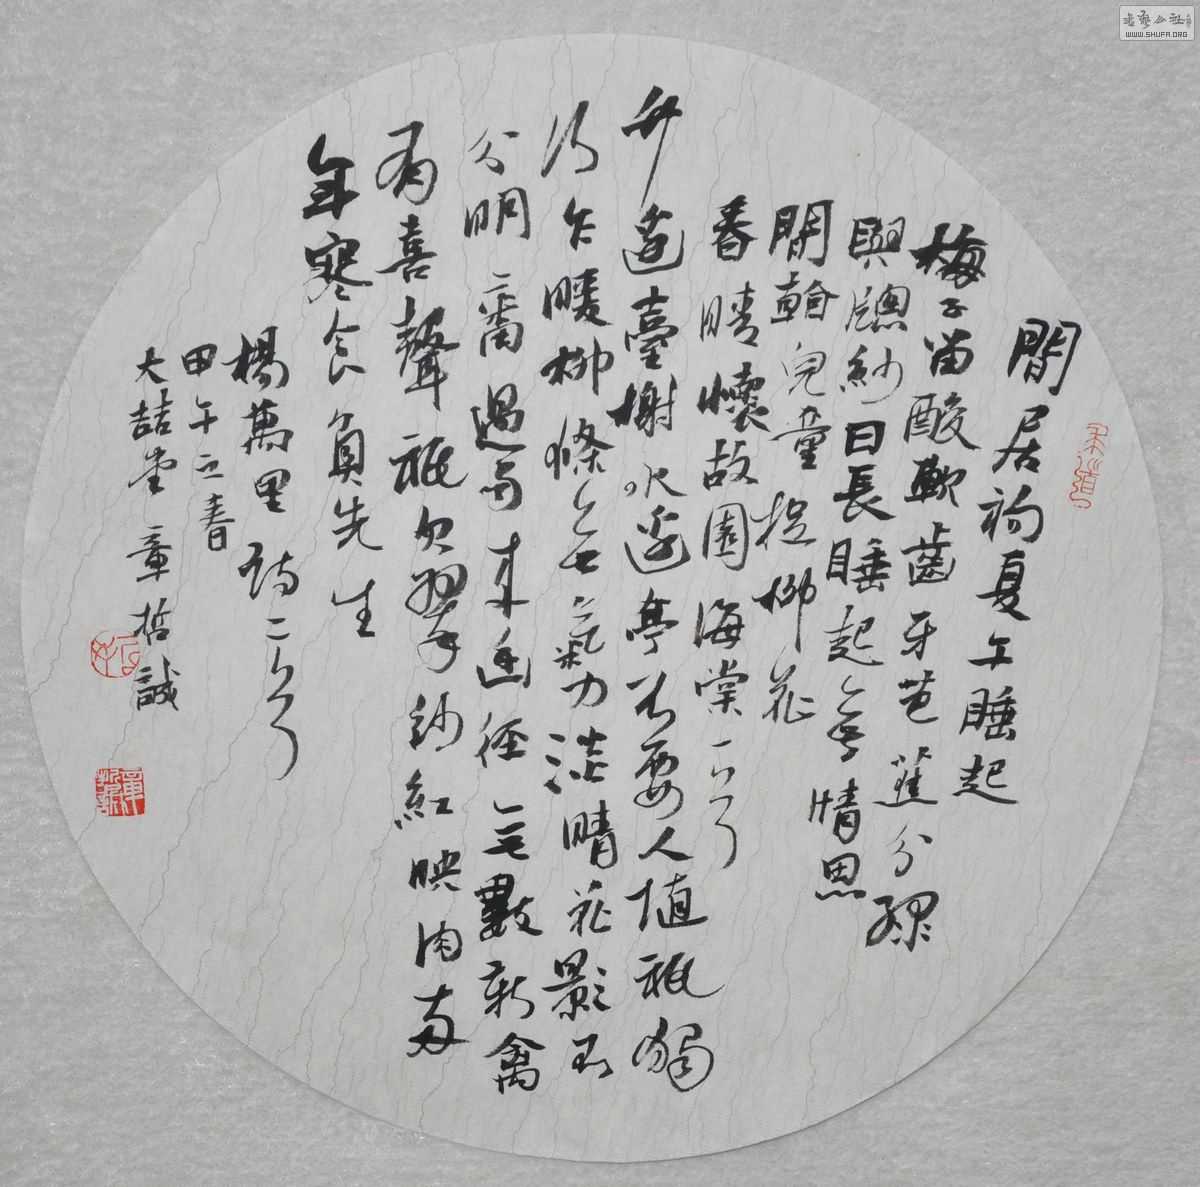 閒居初夏午睡起
梅子留酸軟齒牙芭蕉分綠
與牕紗日長睡起無情思
閒看兒童捉柳花
春晴懷故園海棠一首
竹邊臺榭水邊亭不要人隨祇獨
行乍暖柳條無氣力淡晴花影不
分明一番過雨來幽徑無數新禽
有喜聲祇欠翠紗紅映肉兩
年寒食負先生
楊萬里詩二首
甲午之春
大喆堂章哲誠
WWW.SHUFA.ORG